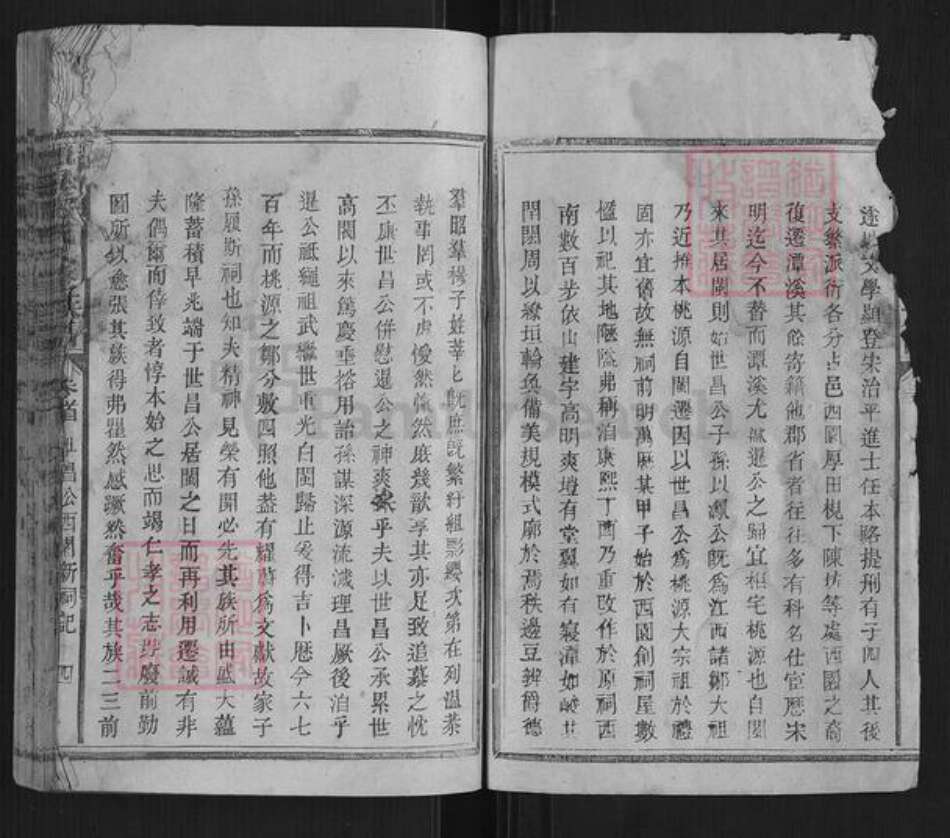 文學顯登宋治平進士任本路提刑有子四人其後
支繁派衍各分占邑西園厚田梘下陳坊等處西園之裔
復遷潭溪其餘寄籍他郡省者往往多有科名仕宦歷宋
明迄今不替而潭溪尤無遷公之歸宜相宅桃源也自閩
來其居閩則始世昌公子孫以源公既為江西諸鄒大祖
乃近推本桃源自閩遷因以世昌公為桃源大宗祖於禮
固亦宜舊故無祠前明萬曆某甲子始於西園創祠屋數
楹以祀其地隘弗稱洎康熙丁酉乃重改作於原祠西
南數百步依山建宇高明爽塏有堂翼如有寢如其
閈閎周以繚垣輪奐備美規模式廓於焉秩邊豆辨爵德
羣昭羣穆子姓莘七既庶既繁紆組影纓次第在列溫恭
執事罔或不虔僾然愾然庶幾歆享其亦足致追慕之忱
丕康世昌公併慰暹公之神爽乎夫以世昌公承累世
高閎以來篤慶垂裕用詒孫謀深源流濊理昌厥後洎乎
暹公祗繩祖武繼世重光自閩歸止爰得吉卜歷今六七
百年而桃源之鄒分敷四照他葢有耀蔚為文獻故家子
孫履斯祠也知夫精神見榮有開必先其族所由盛大蘊
隆蓄積早兆端于世昌公居閩之日而再利用遷誠有非
夫偶爾而倖致者惇本始之思而竭仁孝之志廢前勤
圖所以愈張其族得弗瞿然感蹶然奮乎哉其族二三前
卷首 世昌公西園新祠記 四